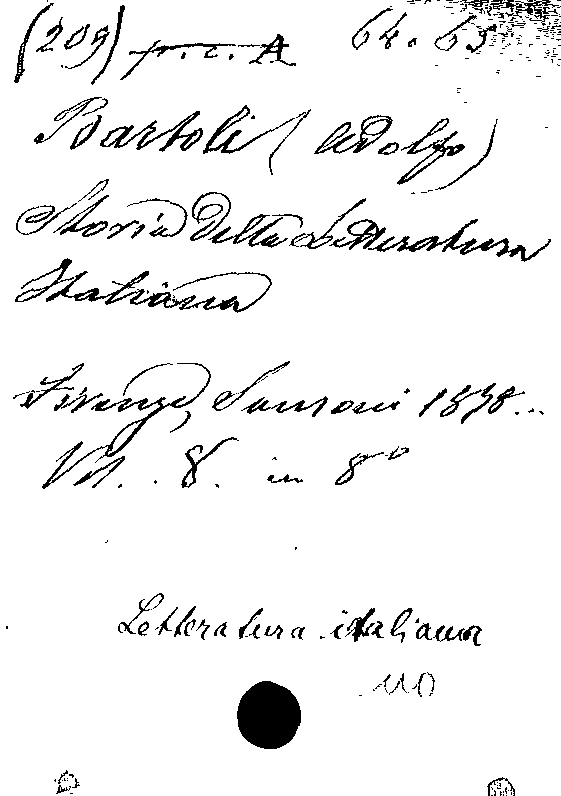 (209) p.c. A 64.65
Bartoli (Adolfo)
Storia della Letteratura
Italiana
Firenze, Sansoni 1878...
Vol. . 8. in 8°
Letteratura italiana